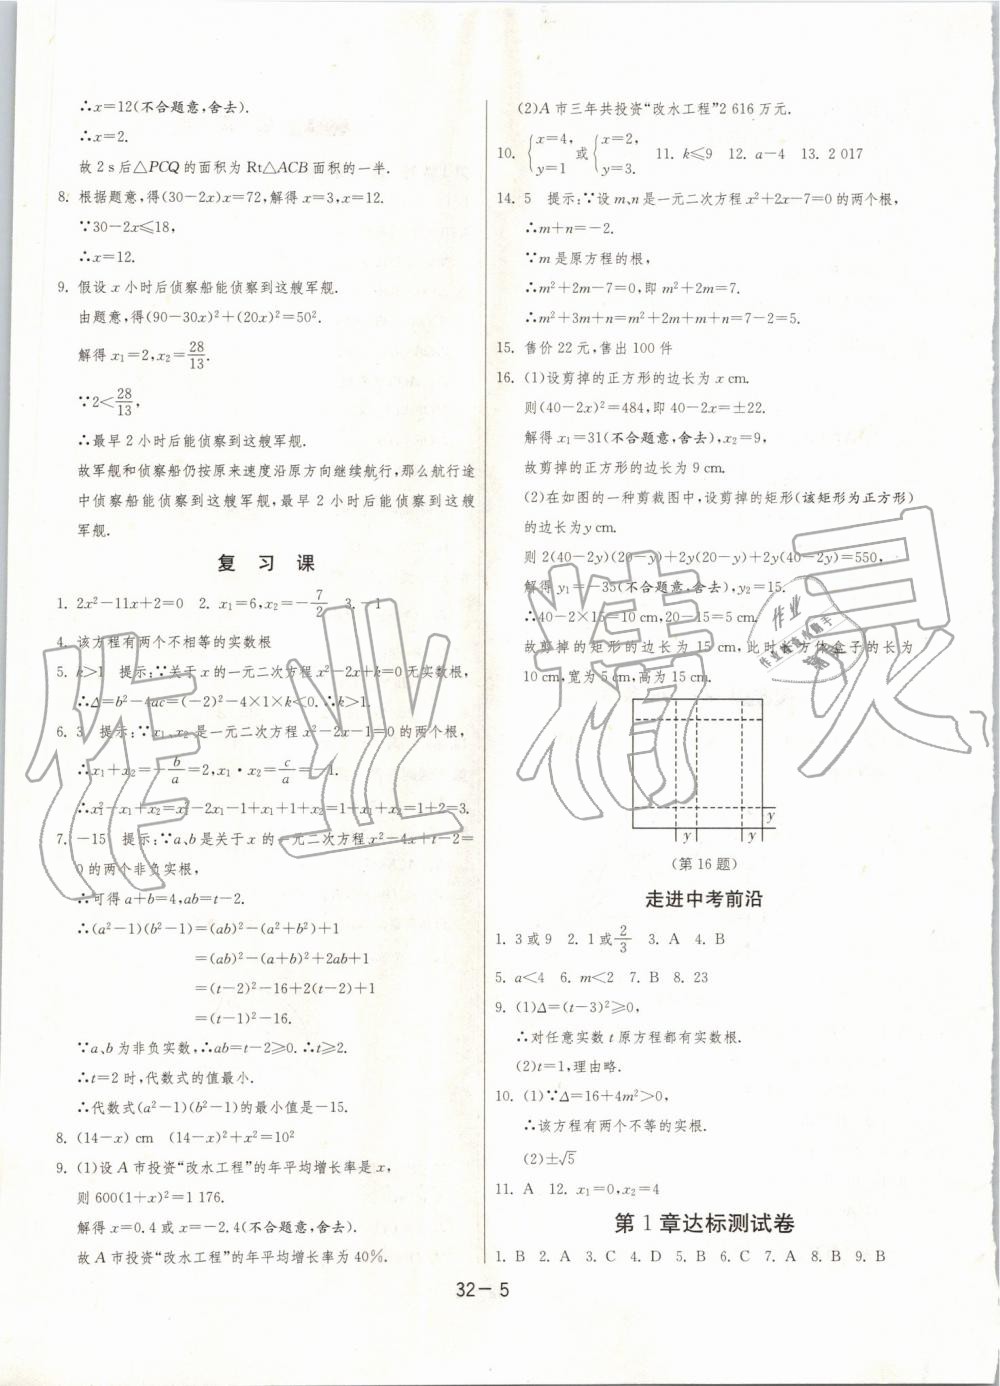 ∴x=12(不合题意,舍去).
∴x=2.
故 2 s 后△PCQ 的面积为 Rt△ACB 面积的一半.
8. 根据题意,得(30-2x)x=72,解得 x=3,x=12.
∵30-2x≤18,
∴x=12.
9. 假设 x 小时后侦察船能侦察到这艘军舰.
由题意,得(90-30x)²+(20x)²=50².
解得 x₁=2,x₂=28/13.
∵2<28/13,
∴最早 2 小时后能侦察到这艘军舰.
故军舰和侦察船仍按原来速度沿原方向继续航行,那么航行途
中侦察船能侦察到这艘军舰,最早 2 小时后能侦察到这艘
军舰.
复 习 课
1. 2x²-11x+2=0 2. x₁=6,x₂=-7/2 3. -1
4. 该方程有两个不相等的实数根
5. k>1 提示:∵关于 x 的一元二次方程 x²-2x+k=0 无实数根,
∴Δ=b²-4ac=(-2)²-4×1×k<0.∴k>1.
6. 3 提示:∵x₁、x₂ 是一元二次方程 x²-2x-1=0 的两个根,
∴x₁+x₂=-b/a=2,x₁·x₂=c/a=-1.
∴x₁²-x₁+x₂=x₁²-2x₁-1+x₁+1+x₂=1+x₁+x₂=1+2=3.
7. -15 提示:∵a、b 是关于 x 的一元二次方程 x²-4x+t-2=
0 的两个非负实根,
∴可得 a+b=4,ab=t-2.
∴(a²-1)(b²-1)=(ab)²-(a²+b²)+1
=(ab)²-(a+b)²+2ab+1
=(t-2)²-16+2(t-2)+1
=(t-1)²-16.
∵a、b 为非负实数,∴ab=t-2≥0.∴t≥2.
∴t=2 时,代数式的值最小.
∴代数式(a²-1)(b²-1)的最小值是-15.
8. (14-x) cm (14-x)²+x²=10²
9. (1)设 A 市投资“改水工程”的年平均增长率是 x,
则 600(1+x)²=1 176.
解得 x=0.4 或 x=-2.4(不合题意,舍去).
故 A 市投资“改水工程”的年平均增长率为 40%.
(2)A 市三年共投资“改水工程”2 616 万元.
10. {x=4, y=1 或 {x=2, y=3. 11. k≤9 12. a-4 13. 2 017
14. 5 提示:∵设 m、n 是一元二次方程 x²+2x-7=0 的两个根,
∴m+n=-2.
∵m 是原方程的根,
∴m²+2m-7=0,即 m²+2m=7.
∴m²+3m+n=m²+2m+m+n=7-2=5.
15. 售价 22 元,售出 100 件
16. (1)设剪掉的正方形的边长为 x cm.
则(40-2x)²=484,即 40-2x=±22.
解得 x₁=31(不合题意,舍去),x₂=9,
故剪掉的正方形的边长为 9 cm.
(2)在如图的一种剪裁图中,设剪掉的矩形(该矩形为正方形)
的边长为 y cm.
则 2(40-2y)(20-y)+2y(20-y)+2y(40-2y)=550,
解得 y₁=-35(不合题意,舍去),y₂=15.
∴40-2×15=10 cm,20-15=5 cm.
故剪掉的矩形的边长为 15 cm,此时长方体盒子的长为
10 cm,宽为 5 cm,高为 15 cm.
y
y y
(第 16 题)
走进中考前沿
1. 3 或 9 2. 1 或 2/3 3. A 4. B
5. a<4 6. m<2 7. B 8. 23
9. (1)Δ=(t-3)²≥0,
∴对任意实数 t 原方程都有实数根.
(2)t=1,理由略.
10. (1)∵Δ=16+4m²>0,
∴该方程有两个不等的实根.
(2)±√5
11. A 12. x₁=0,x₂=4
第 1 章达标测试卷
1. B 2. A 3. C 4. D 5. B 6. C 7. A 8. B 9. B
32-5
作业精灵